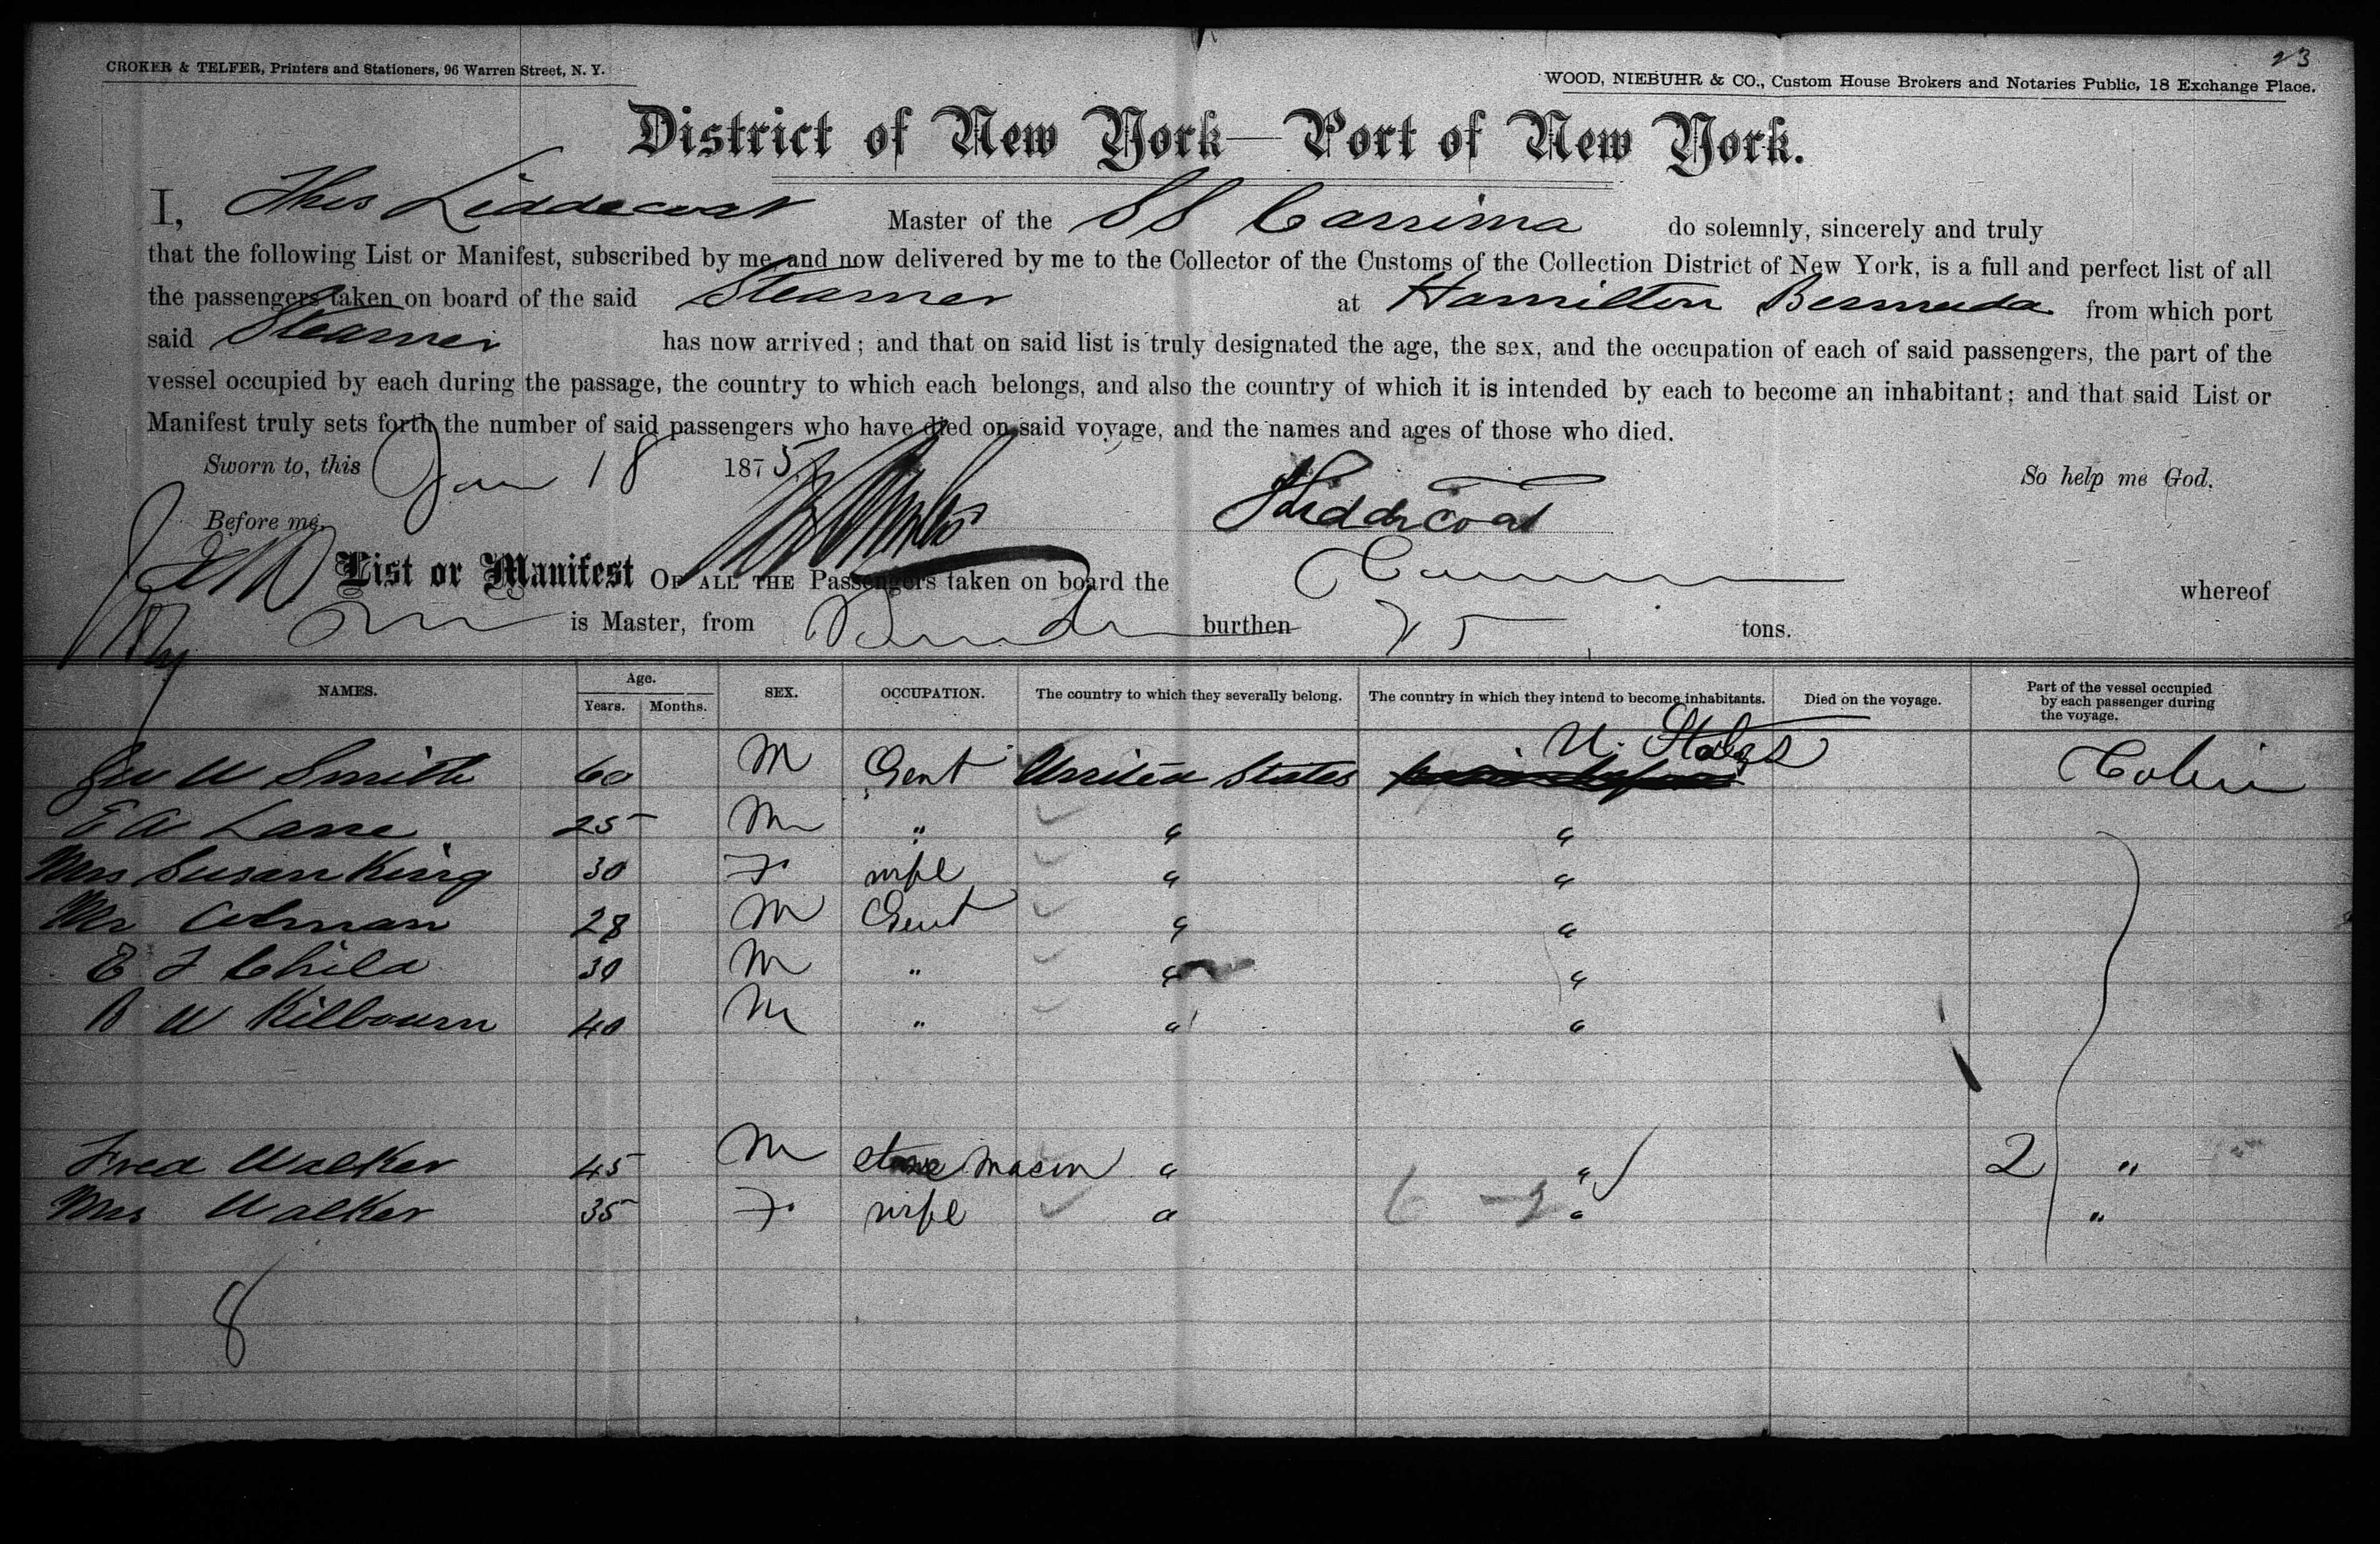 23
CROKER & TELFER, Printers and Stationers, 96 Warren Street, N. Y.
WOOD, NIEBUHR & CO., Custom House Brokers and Notaries Public, 18 Exchange Place.
District of New York—Port of New York.
I, Thos Liddecoat Master of the SS Carrima do solemnly, sincerely and truly
that the following List or Manifest, subscribed by me, and now delivered by me to the Collector of the Customs of the Collection District of New York, is a full and perfect list of all
the passengers taken on board of the said Steamer at Hamilton Bermuda from which port
said Steamer has now arrived; and that on said list is truly designated the age, the sex, and the occupation of each of said passengers, the part of the
vessel occupied by each during the passage, the country to which each belongs, and also the country of which it is intended by each to become an inhabitant; and that said List or
Manifest truly sets forth the number of said passengers who have died on said voyage, and the names and ages of those who died.
Sworn to, this Jan 18 1875 So help me God.
Before me, Liddicoat
List or Manifest OF ALL THE Passengers taken on board the whereof
is Master, from burthen tons.
NAMES. Age. Years. Months. SEX. OCCUPATION. The country to which they severally belong. The country in which they intend to become inhabitants. Died on the voyage. Part of the vessel occupied by each passenger during the voyage.
Geo W Smith 60 M Gent United States U. States Cabin
E A Lane 25 M " " "
Mrs Susan King 30 F wife " "
Mr Colman 28 M Gent " "
E F Child 30 M " " "
B W Kilbourn 40 M " " "
Fred Walker 45 M stone mason " " 2 "
Mrs Walker 35 F wife " 6 - 2 " "
8